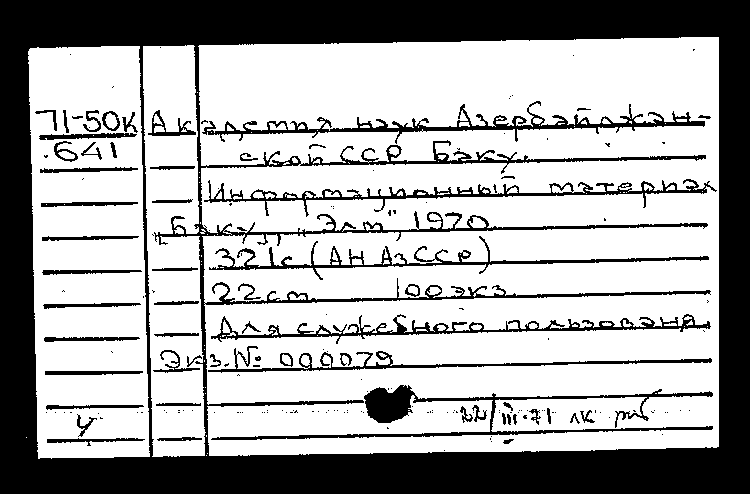 71-50к Академия наук Азербайджан-
641 ской ССР. Баку.
Информационный материал
"Баку", "Элм", 1970
321с. (АН АзССР)
22см. 100экз.
Для служебного пользован.
Экз.№ 000079
Ч 22/III-71 лк